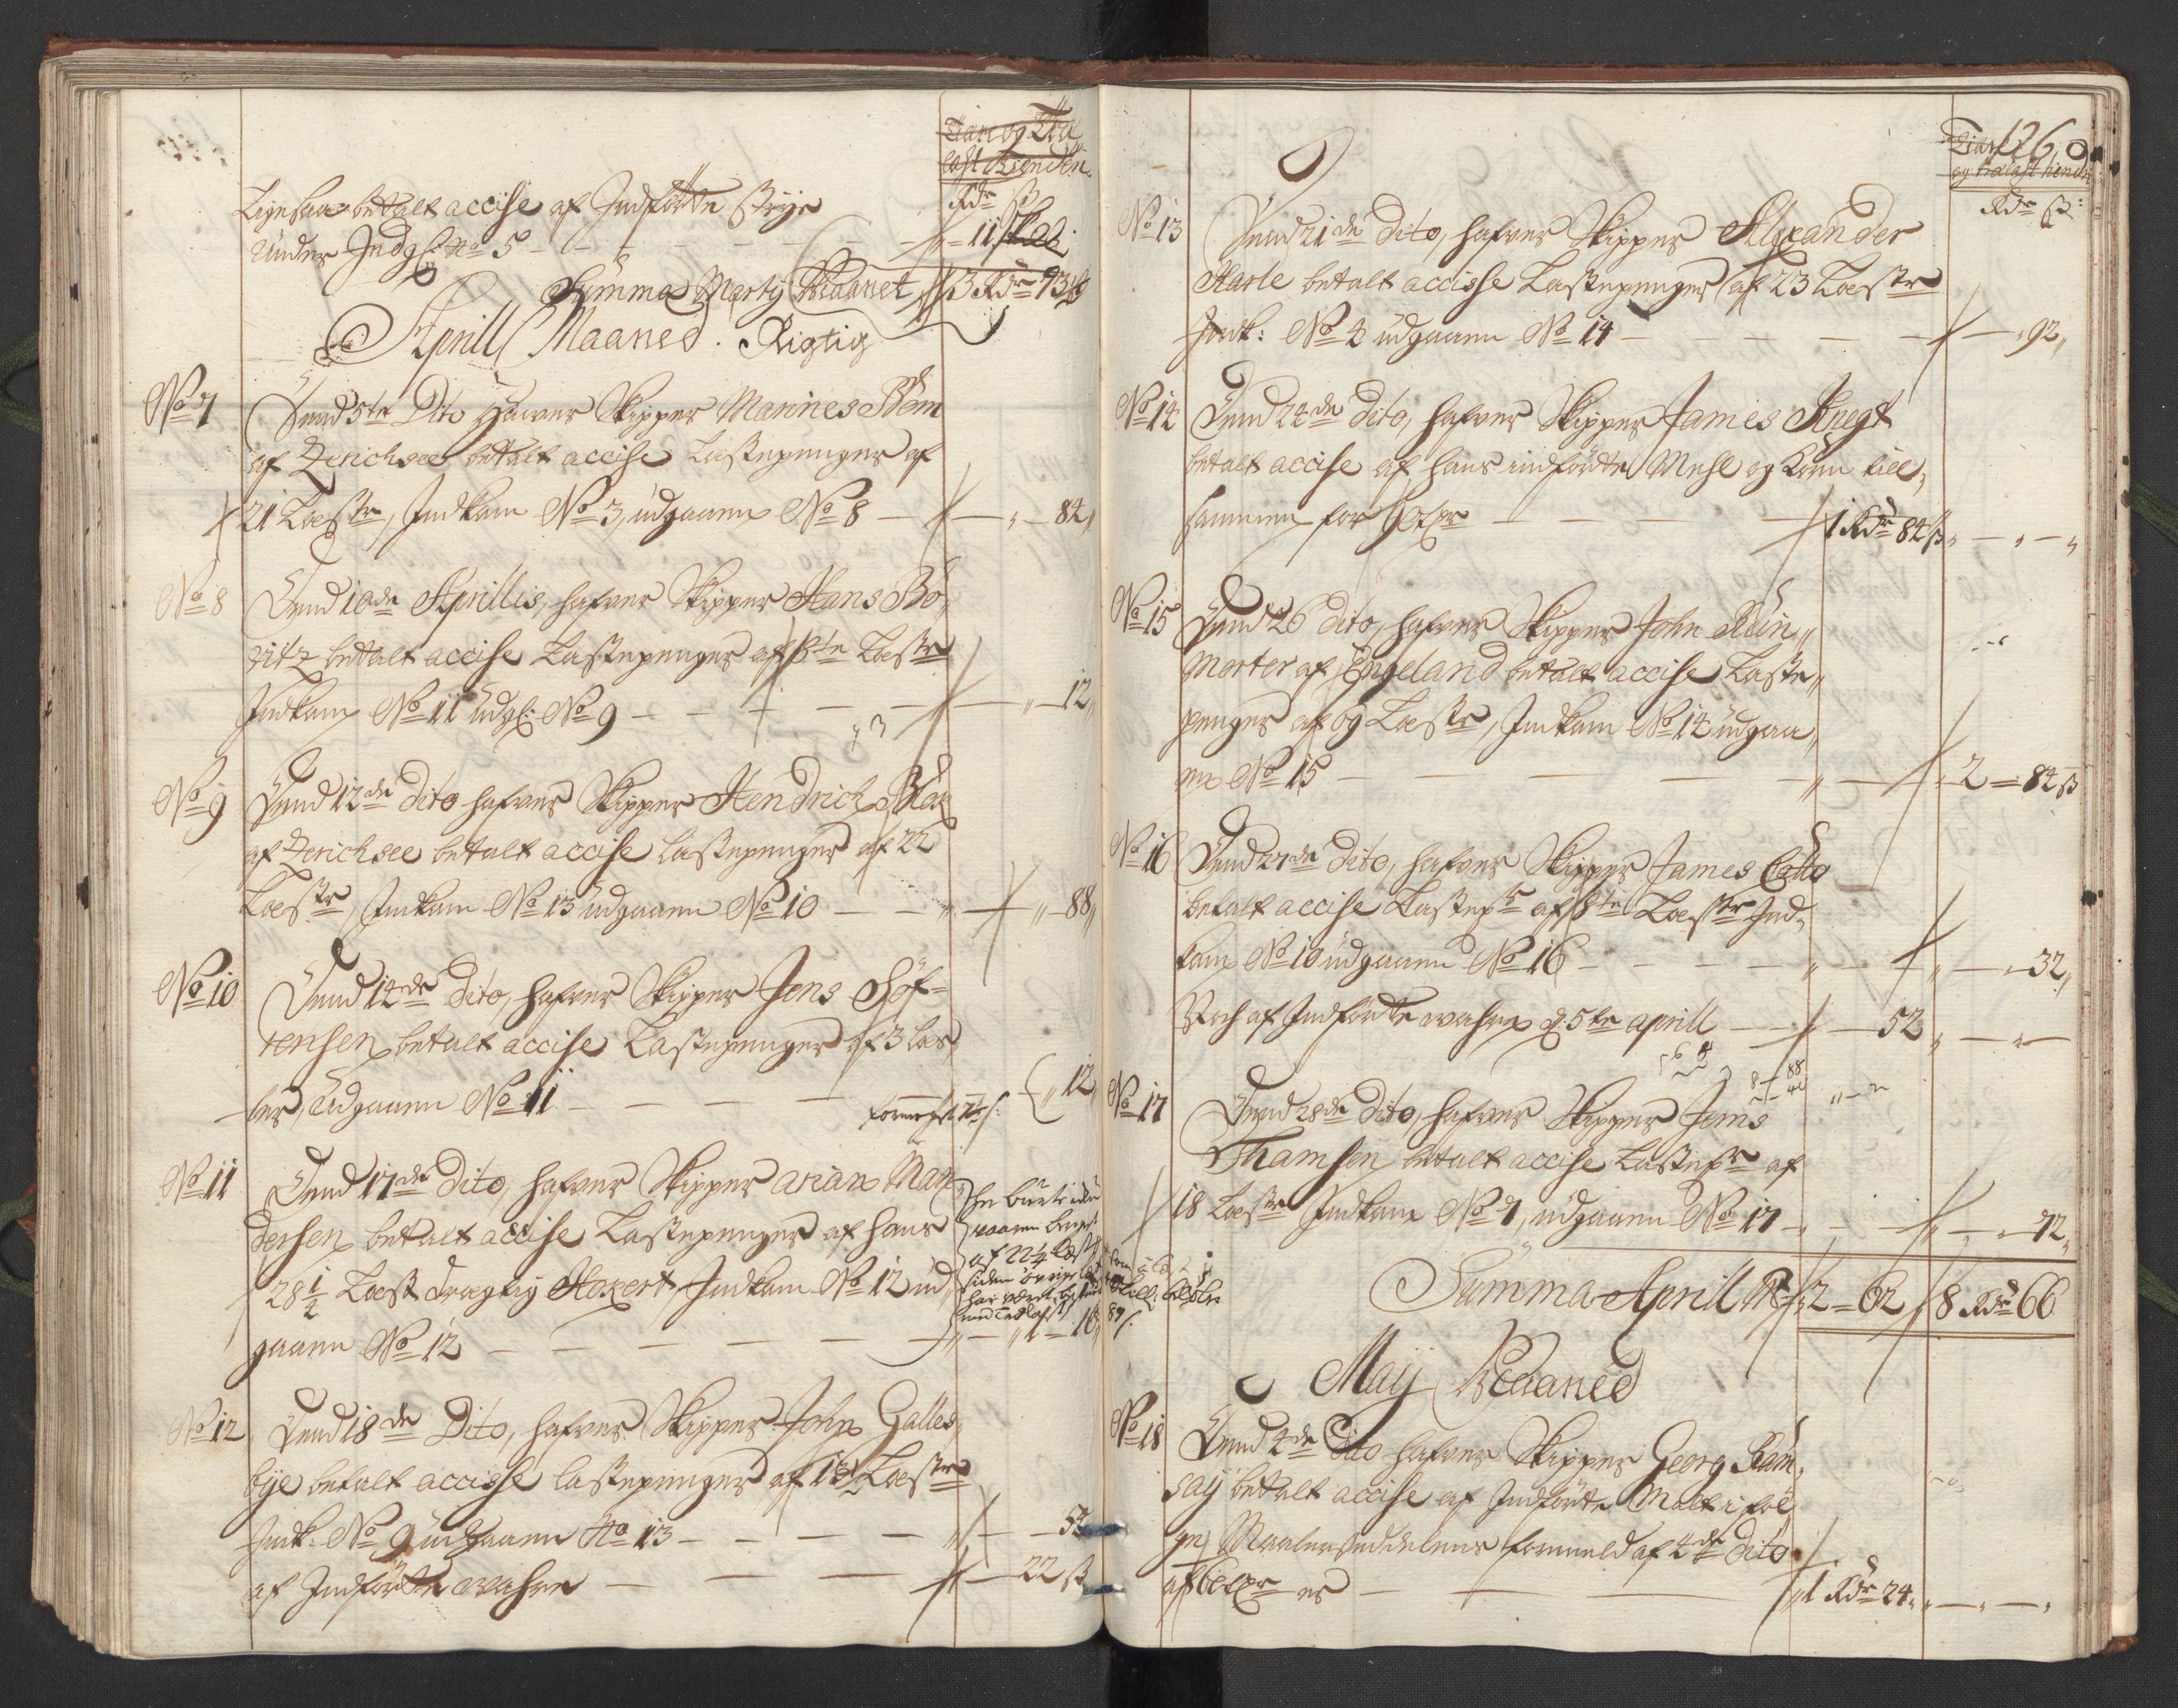 Tiære og Træ
last Tienden
Rdr ß
Ligesaa betalt accise af Indførte Strye
under Indgl: No 5 - - - 11 ß
Summa Marty Maanet 3 Rdr 93 ß
Aprill Maaned. Rigtig
No 7 Dend 5te Dito Hafver Skipper Marines Bom
af Zerichsee betalt accise Lastepenger af
21 Læster, Indkom No 3, udgaaen No 8 — 84
No 8 Dend 10de Aprillis, hafver Skipper Hans Bo,
ritz betalt accise Lastepenger af 3te Læster
Indkom No 11 udgl: No 9 - - - 12
No 9 Dend 12de Dito hafver Skipper Hendrich Blok
af Zerichsee betalt accise Lastepenger af 22
Læster, Indkom No 13 udgaaen No 10 — 88
No 10 Dend 14de Dito, hafver Skipper Jens Søf=
rensen betalt accise Lastepenger af 3 Læs
ter, Udgaaen No 11 — 12
No 11 Dend 17de Dito, hafver Skipper arian Man
dersen betalt accise Lastepenger af hans
28 1/2 Læst drægtig Hoxert, Indkom No 12 ud,
gaaen No 12 — 1 — 16
af 22 1/2 Læst
No 12 Dend 18de Dito, hafver Skipper John Galles,
bye betalt accise lastepenger af 13 Læster
Indk: No 9 udgaaen No 13 — 52
af Indførte wahre — 22 ß
126
Tiære
og trælast tienden
Rdr ß:
No 13 Dend 21de Dito, hafver Skipper Alexander
Harle betalt accisse Lastepenger af 23 Læster
Indk: No 4 udgaaen No 14 — 92
No 14 Dend 24de Dito, hafver Skipper James Knegt
betalt accise af hans indførte Mehl og Korn till,
sammen for — 1 Rdr 84 ß
No 15 Dend 26 Dito, hafver Skipper John Run,,
morter af Engeland betalt accise Laste,,
penger af 69 Læster, Indkom No 14 udgaa,,
en No 15 — 2 = 84 ß
No 16 Dend 27de Dito, hafver Skipper James Cotto
betalt accise Lastepr af 8te Læster Ind,
kom No 10 udgaaen No 16 — 32
Noch af Indførte wahre d: 5te aprill — 52
No 17 Dend 28de Dito, hafver Skipper Jems
Thamsen betalt accise Lastepr af
18 Læster Indkom No 7, udgaaen No 17 — 72
Summa Aprill Mt 2 = 62 8 Rdr 66
Maij Maaned
No 18 Dend 4de Dito hafver Skipper Georg Ram,
saij betalt accise af Indførte Malt i føl
ge Maalerseddelens formeld af 4de Dito
af er — 1 Rdr 24